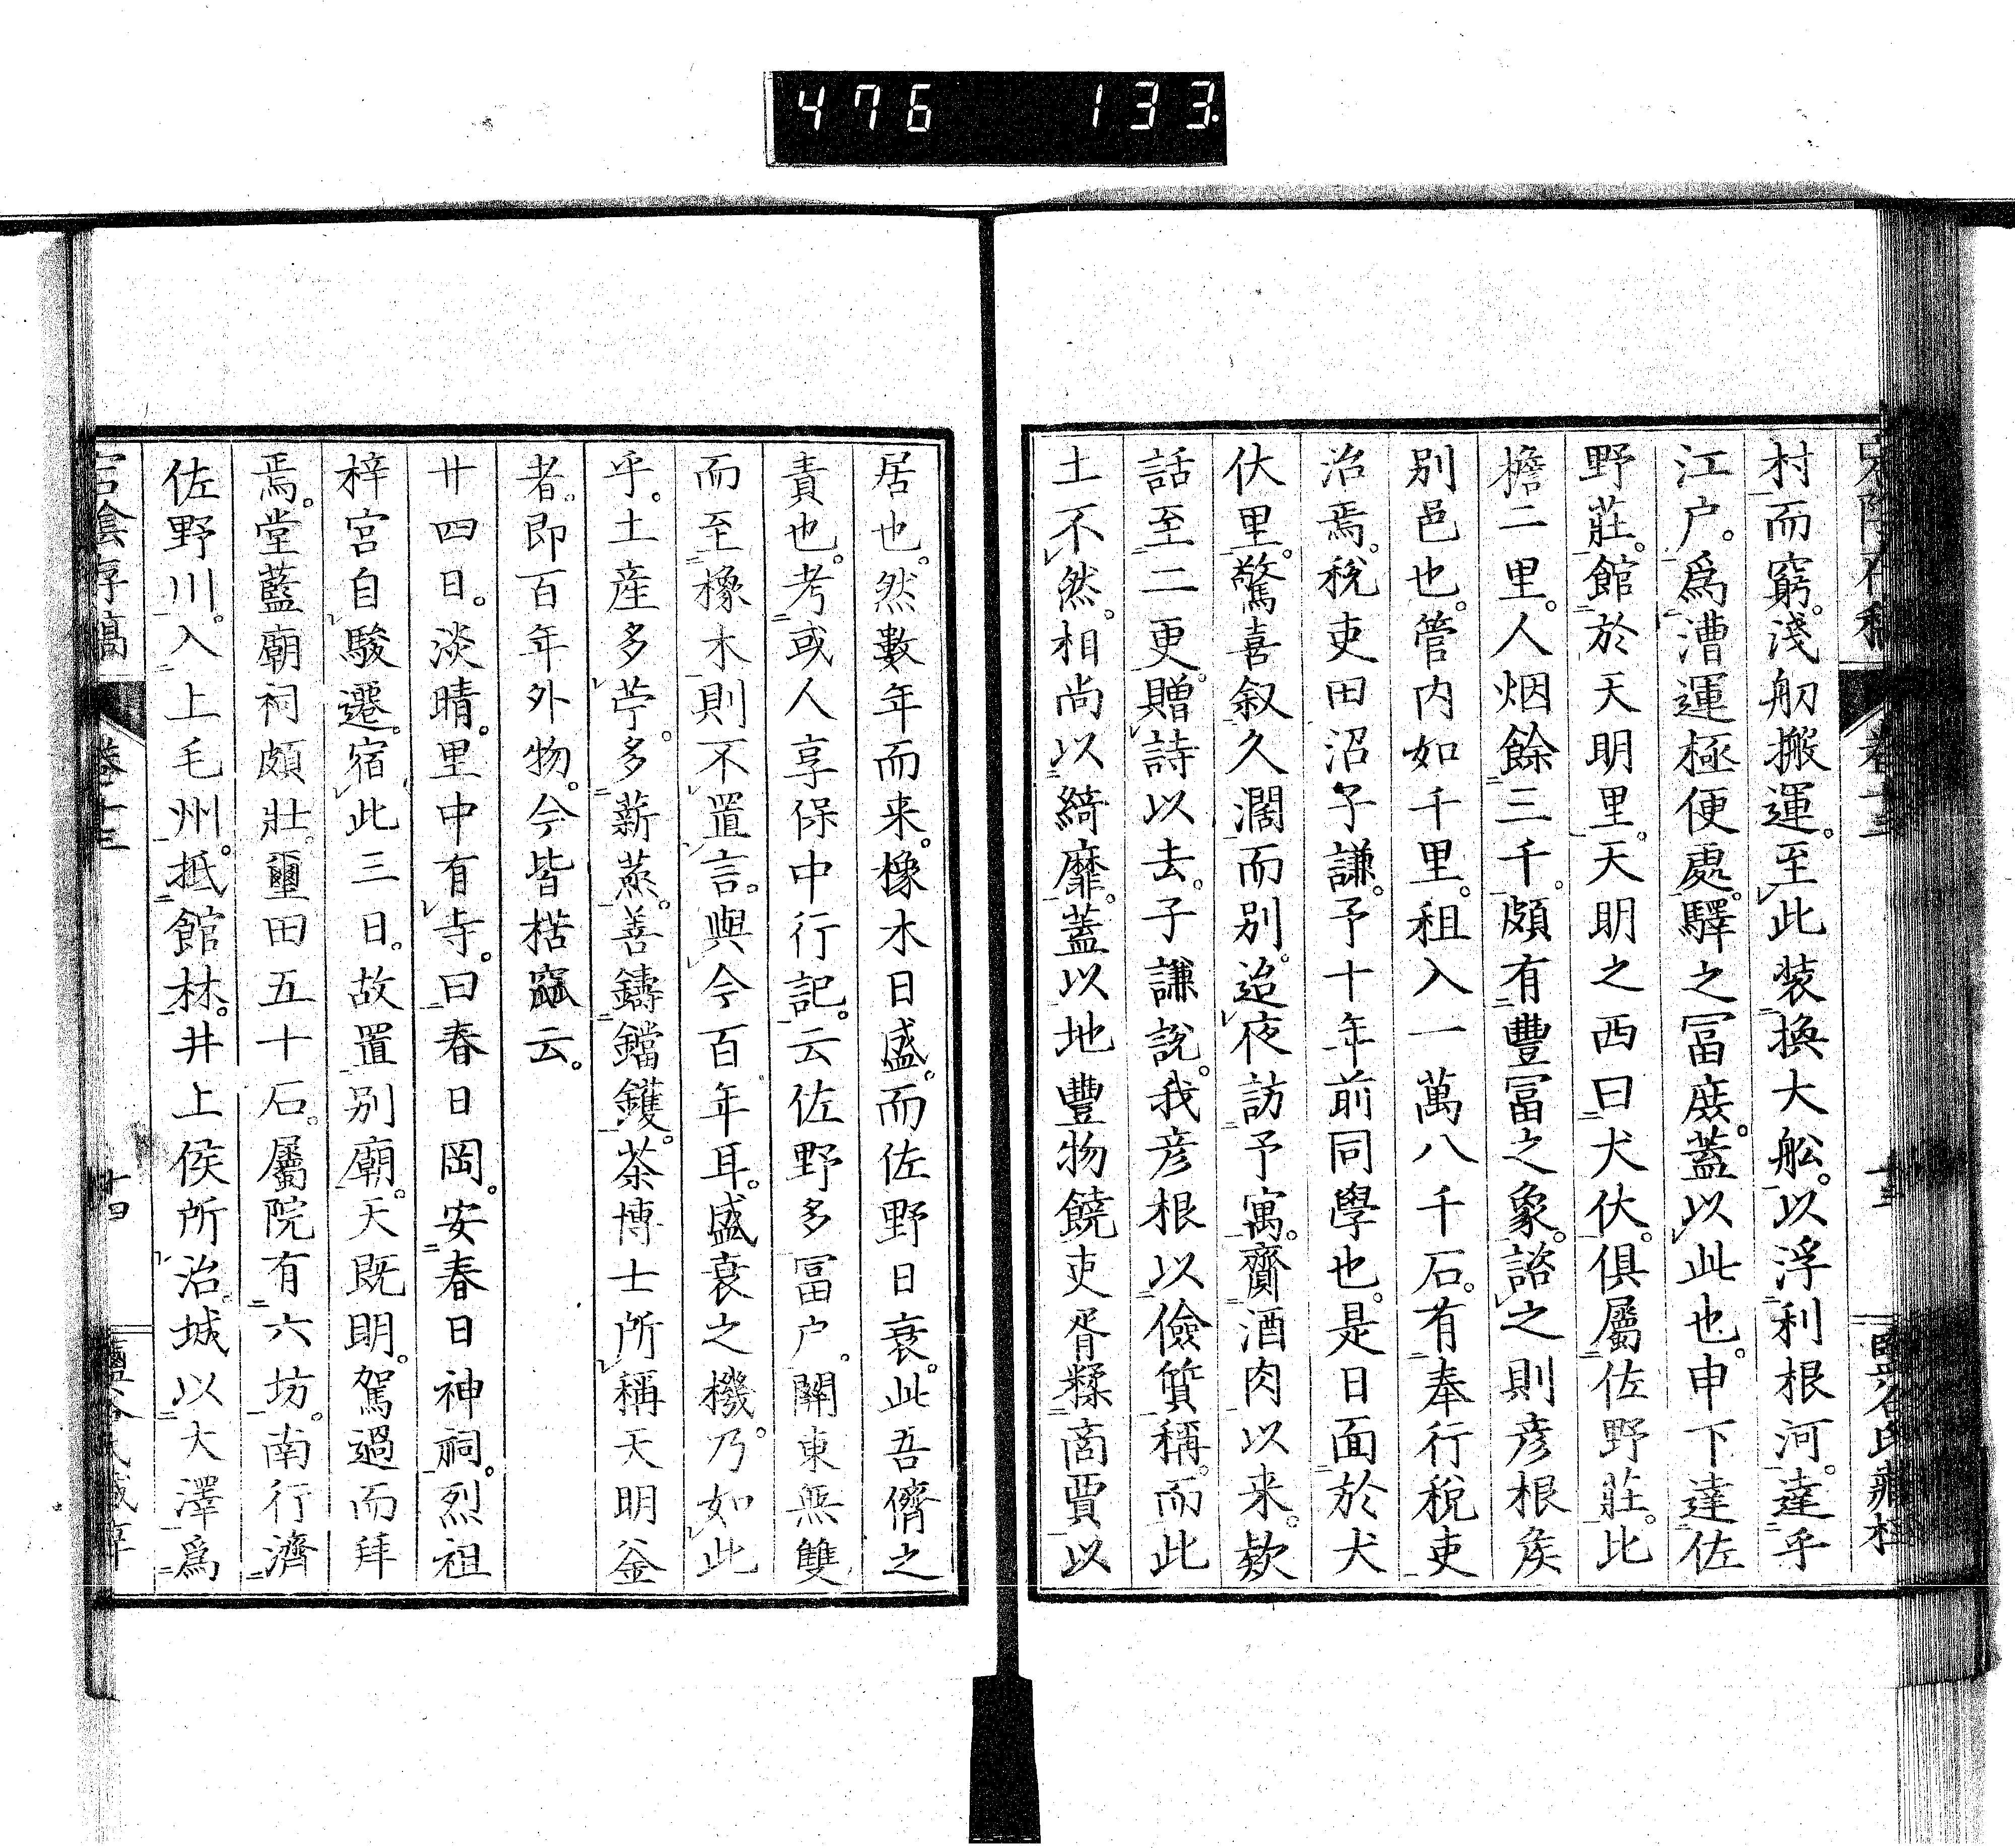 476 133
村而窮。淺舠搬運。至此装換大舩。以浮利根河。達乎
江户。爲漕運極便處。驛之冨庶。蓋以此也。申下達佐
野莊。館於天明里。天明之西曰犬伏。俱屬佐野莊。比
檐二里。人烟餘三千。頗有豐冨之象。諮之則彦根矦
别邑也。管内如千里。租入一萬八千石。有奉行税吏
治焉。税吏田沼子謙。予十年前同學也。是日面於犬
伏里。驚喜叙久濶而别。迨夜訪予寓。齎酒肉以来。欵
話至二更。贈詩以去。子謙説。我彦根以儉質稱。而此
土不然。相尚以綺靡。蓋以地豐物饒吏胥糅商賈以
居也。然數年而来。橡木日盛。而佐野日衰。此吾儕之
責也。考或人享保中行記。云佐野多冨户。關東無雙
而至橡木則不置言。與今百年耳。盛衰之機。乃如此
乎。土産多苧。多薪蒸。善鑄鐺鑊。茶博士所稱天明釜
者。即百年外物。今皆楛窳云。
廿四日。淡晴。里中有寺。曰春日岡。安春日神祠。烈祖
梓宮自駿遷。宿此三日。故置别廟。天既明。駕過而拜
焉。堂藍廟祠頗壯。璽田五十石。屬院有六坊。南行濟
佐野川。入上毛州。抵館林。井上侯所治。城以大澤爲
卷十三
十四